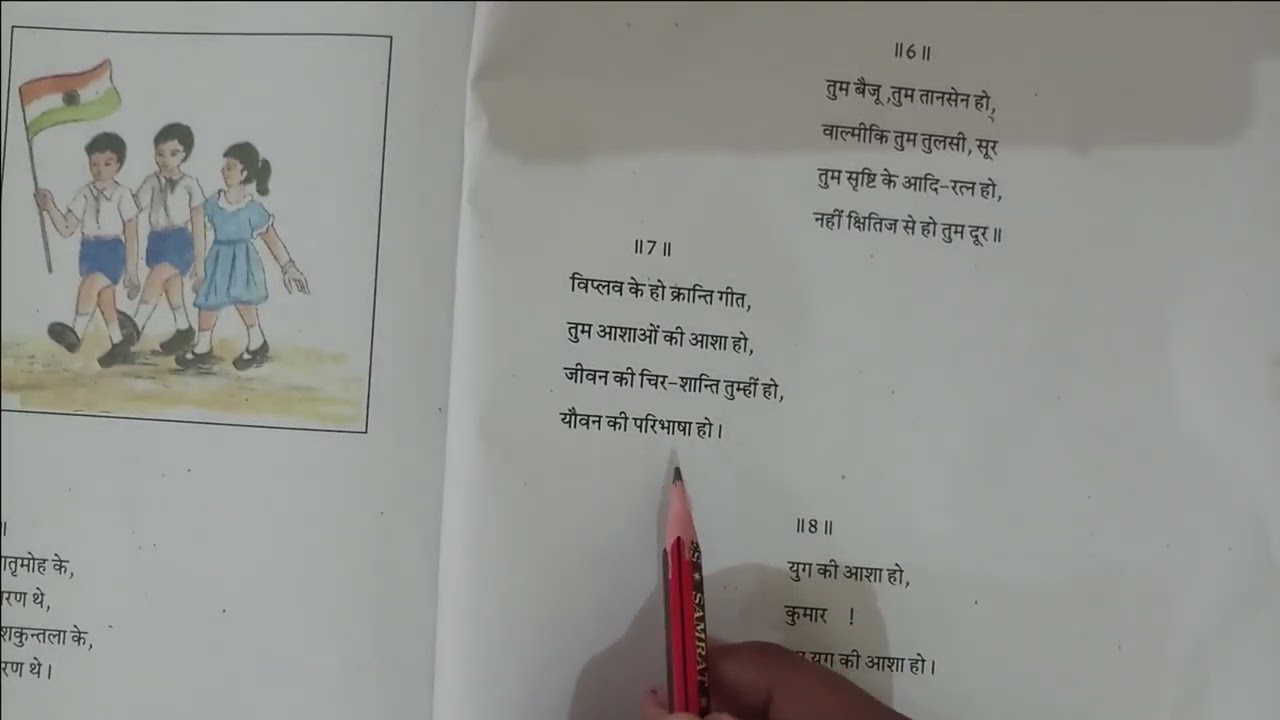 ॥
ातृमोह के,
रण थे,
शकुन्तला के,
रण थे।
॥6॥
तुम बैजू ,तुम तानसेन हो,
वाल्मीकि तुम तुलसी, सूर
तुम सृष्टि के आदि-रत्न हो,
नहीं क्षितिज से हो तुम दूर॥
॥7॥
विप्लव के हो क्रान्ति गीत,
तुम आशाओं की आशा हो,
जीवन की चिर-शान्ति तुम्हीं हो,
यौवन की परिभाषा हो।
॥8॥
युग की आशा हो,
कुमार !
युग की आशा हो।
SAMRAT